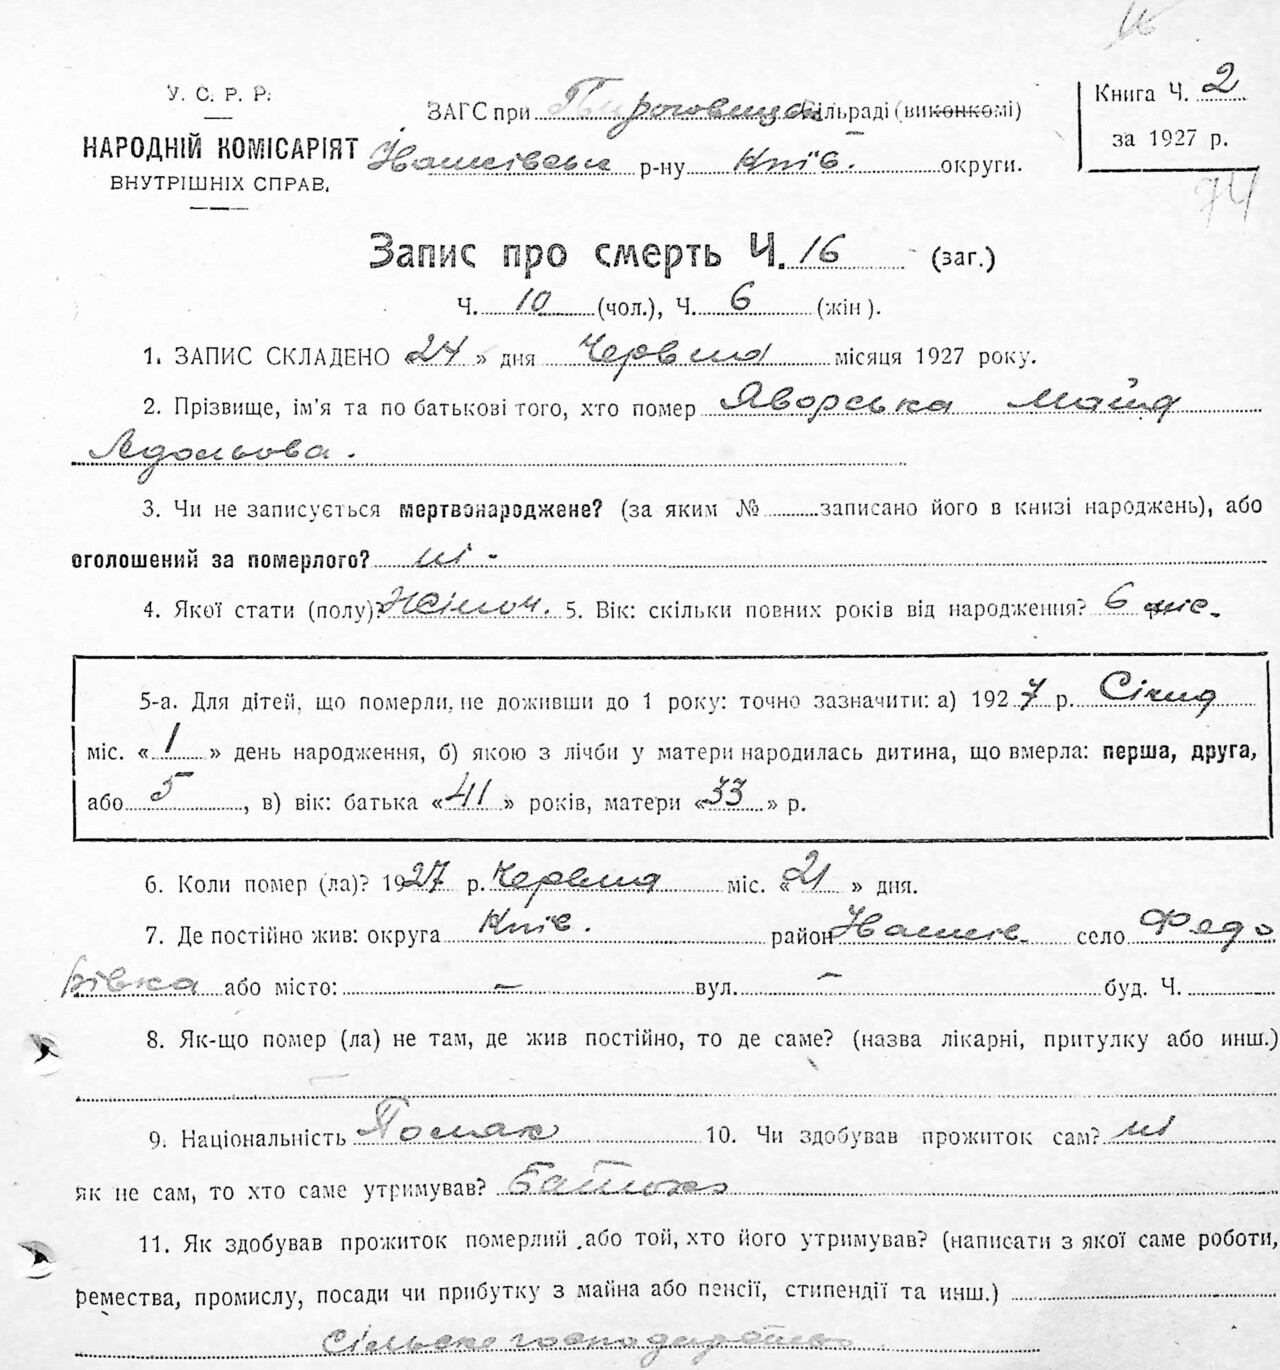 У. С. Р. Р.
НАРОДНІЙ КОМІСАРІЯТ
ВНУТРІШНІХ СПРАВ.
ЗАГС при Пироговицькій сільраді (виконкомі)
р-ну Київ. округи.
Книга Ч. 2
за 1927 р.
74
Запис про смерть Ч. 16 (заг.)
Ч. 10 (чол.), Ч. 6 (жін).
1. ЗАПИС СКЛАДЕНО «24» дня Червня місяця 1927 року.
2. Прізвище, ім'я та по батькові того, хто помер Яворська
Адольова.
3. Чи не записується мертвонароджене? (за яким № записано його в книзі народжень), або
оголошений за померлого? ні -
4. Якої стати (полу)? Жіноч. 5. Вік: скільки повних років від народження? 6 міс.
5-а. Для дітей, що померли, не доживши до 1 року: точно зазначити: а) 1927 р. Січня
міс. «1» день народження, б) якою з лічби у матери народилась дитина, що вмерла: перша, друга,
або 5, в) вік: батька «41» років, матери «33» р.
6. Коли помер (ла)? 1927 р. Червня міс. «21» дня.
7. Де постійно жив: округа Київ. район село Федо
рівка або місто: – вул. – буд. Ч.
8. Як-що помер (ла) не там, де жив постійно, то де саме? (назва лікарні, притулку або инш.)
9. Національність Поляк 10. Чи здобував прожиток сам? ні
як не сам, то хто саме утримував? Батько
11. Як здобував прожиток померлий або той, хто його утримував? (написати з якої саме роботи,
ремества, промислу, посади чи прибутку з майна або пенсії, стипендії та инш.)
Сільське господарство